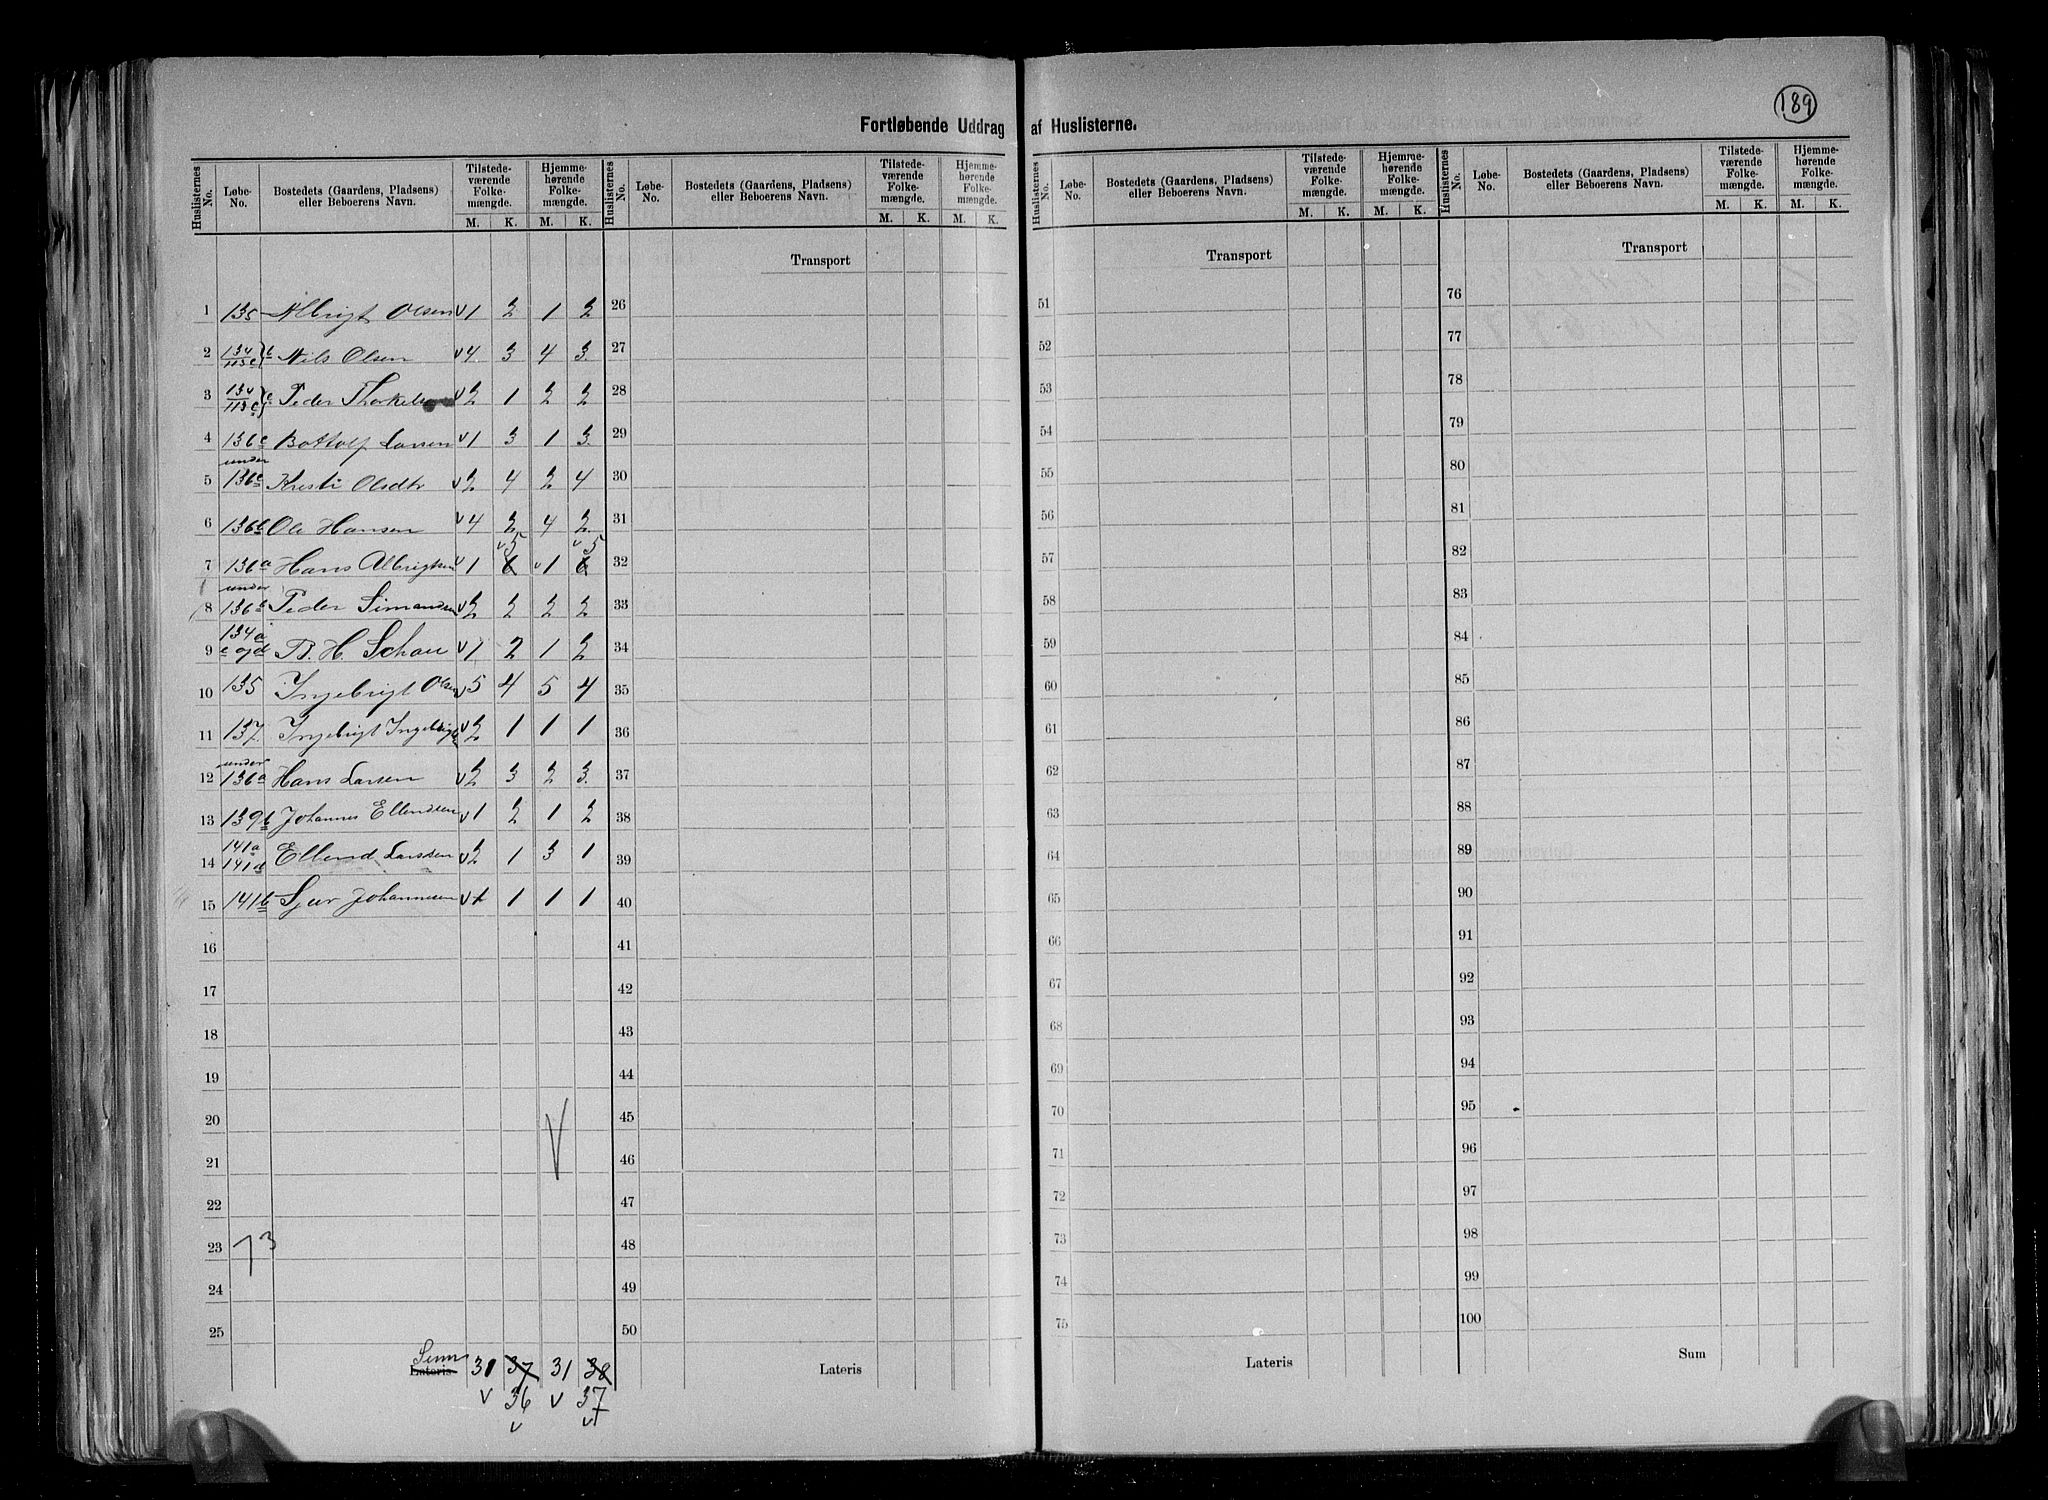 189
Fortløbende Uddrag af Huslisterne.
Huslisternes No. Løbe-No. Bostedets (Gaardens, Pladsens) eller Beboerens Navn. Tilstedeværende Folkemængde. M. K. Hjemmehørende Folkemængde. M. K.
Huslisternes No. Løbe-No. Bostedets (Gaardens, Pladsens) eller Beboerens Navn. Tilstedeværende Folkemængde. M. K. Hjemmehørende Folkemængde. M. K.
Huslisternes No. Løbe-No. Bostedets (Gaardens, Pladsens) eller Beboerens Navn. Tilstedeværende Folkemængde. M. K. Hjemmehørende Folkemængde. M. K.
Huslisternes No. Løbe-No. Bostedets (Gaardens, Pladsens) eller Beboerens Navn. Tilstedeværende Folkemængde. M. K. Hjemmehørende Folkemængde. M. K.
1 135 Albrigt Olsen v 1 2 1 2
2 134/113c b Nils Olsen v 4 3 4 3
3 134/113c c Peder Thorkels v 2 1 2 2
4 136c Bottolf Larsen v 1 3 1 3
5 under 136c Kristi Olsdtr v 2 4 2 4
6 136b Ole Hansen v 4 2 4 2
v 5 v 5
7 136a Hans Albrigtsen v 1 6 v 1 6
8 under 136b Peder Simonsen v 2 2 2 2
9 134a c og d B. H. Schau v 1 2 1 2
10 135 Ingebrigt Olsen v 5 4 5 4
11 137. Ingebrigt Ingebrigts v 2 1 1 1
12 under 136a Hans Larsen v 2 3 2 3
13 139b Johannes Ellendsen v 1 2 1 2
14 141a 141d Ellend Larsen v 2 1 3 1
15 141b Sjur Johannesen v 1 1 1 1
16
17
18
19
20
21 V
22
23 73
24
25
Sum Lateris 31 37 31 38
v 36 v 37
v v
Transport
26
27
28
29
30
31
32
33
34
35
36
37
38
39
40
41
42
43
44
45
46
47
48
49
50
Lateris
Transport
51
52
53
54
55
56
57
58
59
60
61
62
63
64
65
66
67
68
69
70
71
72
73
74
75
Lateris
Transport
76
77
78
79
80
81
82
83
84
85
86
87
88
89
90
91
92
93
94
95
96
97
98
99
100
Sum